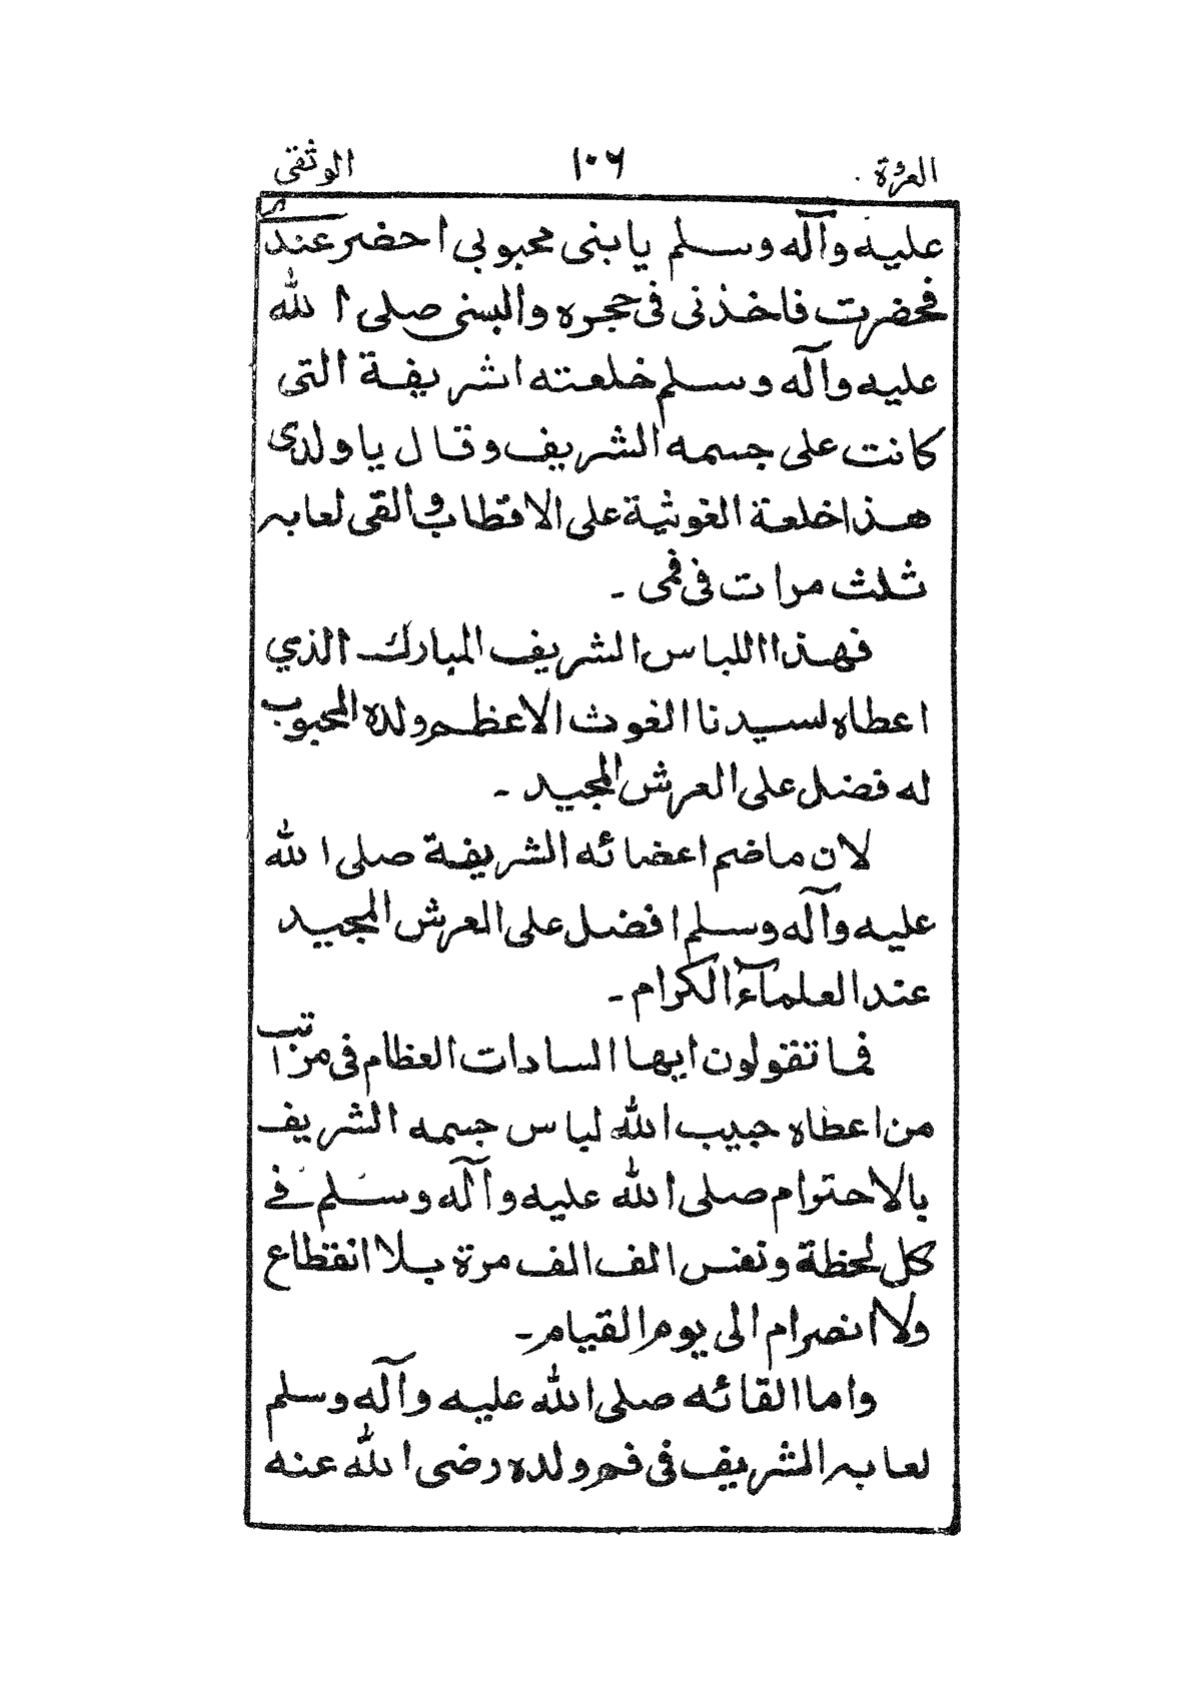 العروة ١٠٦ الوثقى
عليه وآله وسلم يا بنى محبوبي احضر عندى
فحضرت فاخذنى فى حجره والبسنى صلى الله
عليه وآله وسلم خلعته اشريفة التى
كانت على جسمه الشريف وقال يا ولدى
هذا خلعة الغوثية على الاقطاب والقى لعابه
ثلث مرات فى فمى -
فهذا اللباس الشريف المبارك الذي
اعطاه لسيدنا الغوث الاعظم ولده المحبوب
له فضل على العرش المجيد -
لان ما ضم اعضائه الشريفة صلى الله
عليه وآله وسلم افضل على العرش المجيد
عند العلمآء الكرام -
فما تقولون ايها السادات العظام فى مراتب
من اعطاه حبيب الله لباس جسمه الشريف
بالاحترام صلى الله عليه وآله وسلم فى
كل لحظة ونفس الف الف مرة بلا انقطاع
ولا انصرام الى يوم القيام -
واما القائه صلى الله عليه وآله وسلم
لعابه الشريف فى فم ولده رضى الله عنه